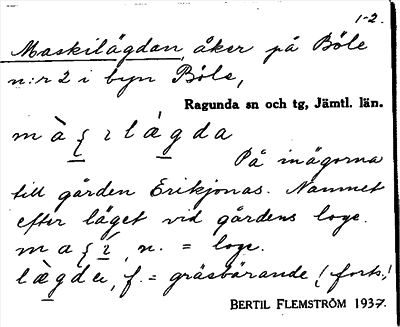 1-2.
Maskilägdan, åker på Böle
n:r 2 i byn Böle,
Ragunda sn och tg, Jämtl. län.
På inägorna
till gården Erikjonas. Namnet
efter läget vid gårdens loge.
n. = loge.
f. = gräsbärande (forts.)
BERTIL FLEMSTRÖM 1937.